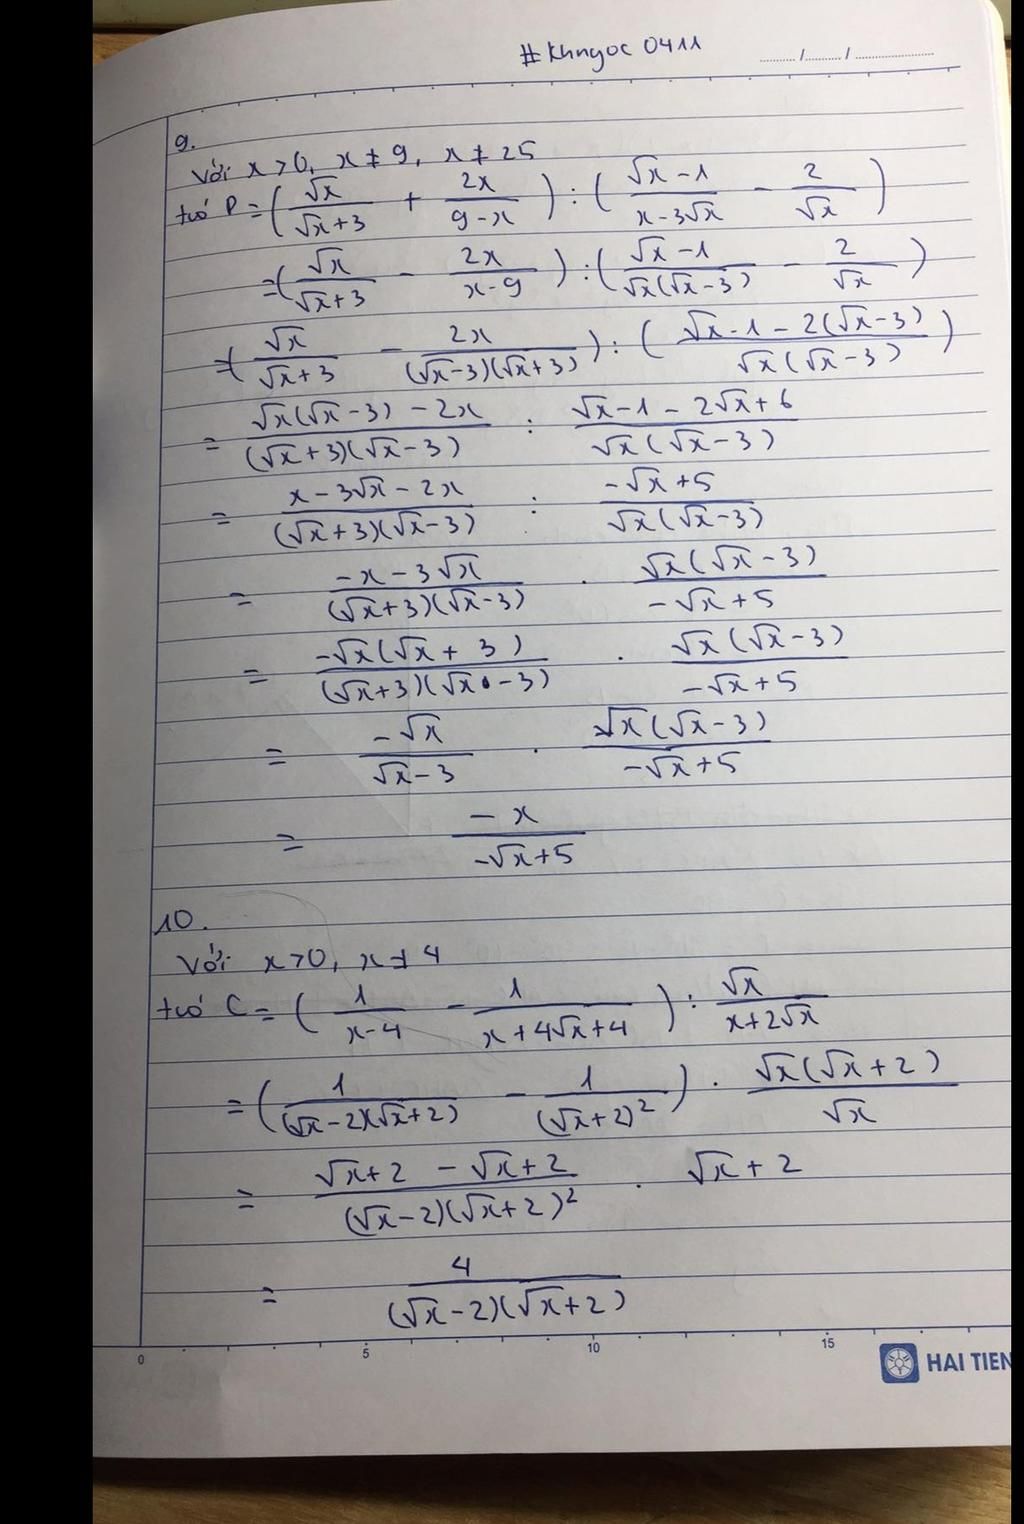 #Khngoc 0411 ......../......../................
9.
Với x > 0, x ≠ 9, x ≠ 25
có P = (√x/(√x+3) + 2x/(9-x)) : ((√x-1)/(x-3√x) - 2/√x)
= (√x/(√x+3) - 2x/(x-9)) : ((√x-1)/(√x(√x-3)) - 2/√x)
= (√x/(√x+3) - 2x/((√x-3)(√x+3))) : ((√x-1-2(√x-3))/(√x(√x-3)))
= (√x(√x-3)-2x)/((√x+3)(√x-3)) : (√x-1-2√x+6)/(√x(√x-3))
= (x-3√x-2x)/((√x+3)(√x-3)) : (-√x+5)/(√x(√x-3))
= (-x-3√x)/((√x+3)(√x-3)) . (√x(√x-3))/(-√x+5)
= (-√x(√x+3))/((√x+3)(√x-3)) . (√x(√x-3))/(-√x+5)
= (-√x)/(√x-3) . (√x(√x-3))/(-√x+5)
= (-x)/(-√x+5)
10.
Với x > 0, x ≠ 4
có C = (1/(x-4) - 1/(x+4√x+4)) : √x/(x+2√x)
= (1/((√x-2)(√x+2)) - 1/(√x+2)²) . (√x(√x+2))/√x
= (√x+2 -√x+2)/((√x-2)(√x+2)²) . √x+2
= 4/((√x-2)(√x+2))
0 5 10 15
HAI TIEN